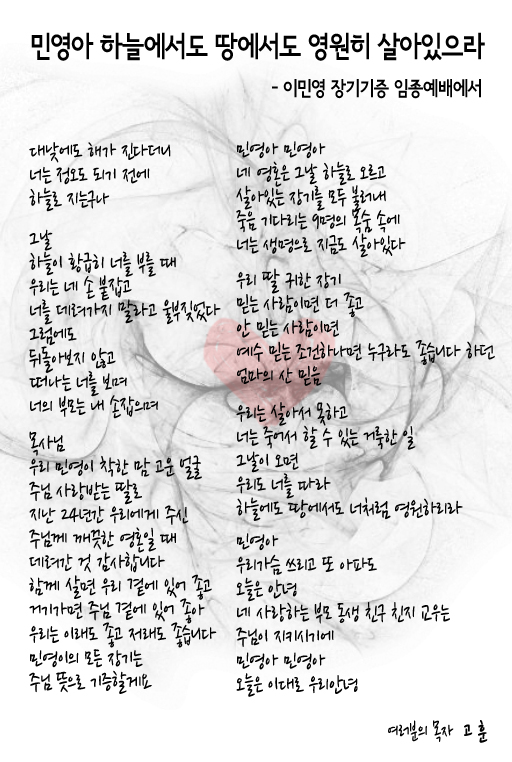 민영아 하늘에서도 땅에서도 영원히 살아있으라
- 이민영 장기기증 임종예배에서
대낮에도 해가 진다더니
너는 정오도 되기 전에
하늘로 지는구나
그날
하늘이 황급히 너를 부를 때
우리는 네 손 붙잡고
너를 데려가지 말라고 울부짖었다
그럼에도
뒤돌아보지 않고
떠나는 너를 보며
너의 부모는 내 손잡으며
목사님
우리 민영이 착한 맘 고운 얼굴
주님 사랑받는 딸로
지난 24년간 우리에게 주신
주님께 깨끗한 영혼일 때
데려간 것 감사합니다
함께 살면 우리 곁에 있어 좋고
거기가면 주님 곁에 있어 좋아
우리는 이래도 좋고 저래도 좋습니다
민영이의 모든 장기는
주님 뜻으로 기증할게요
민영아 민영아
네 영혼은 그날 하늘로 오르고
살아있는 장기를 모두 불러내
죽음 기다리는 9명의 목숨 속에
너는 생명으로 지금도 살아있다
우리 딸 귀한 장기
믿는 사람이면 더 좋고
안 믿는 사람이면
예수 믿는 조건하나면 누구라도 좋습니다 하던
엄마의 산 믿음
우리는 살아서 못하고
너는 죽어서 할 수 있는 거룩한 일
그날이 오면
우리도 너를 따라
하늘에도 땅에서도 너처럼 영원하리라
민영아
우리가슴 쓰리고 또 아파도
오늘은 안녕
네 사랑하는 부모 동생 친구 친지 교우는
주님이 지키시기에
민영아 민영아
오늘은 이대로 우리안녕
여러분의 목자 고 훈